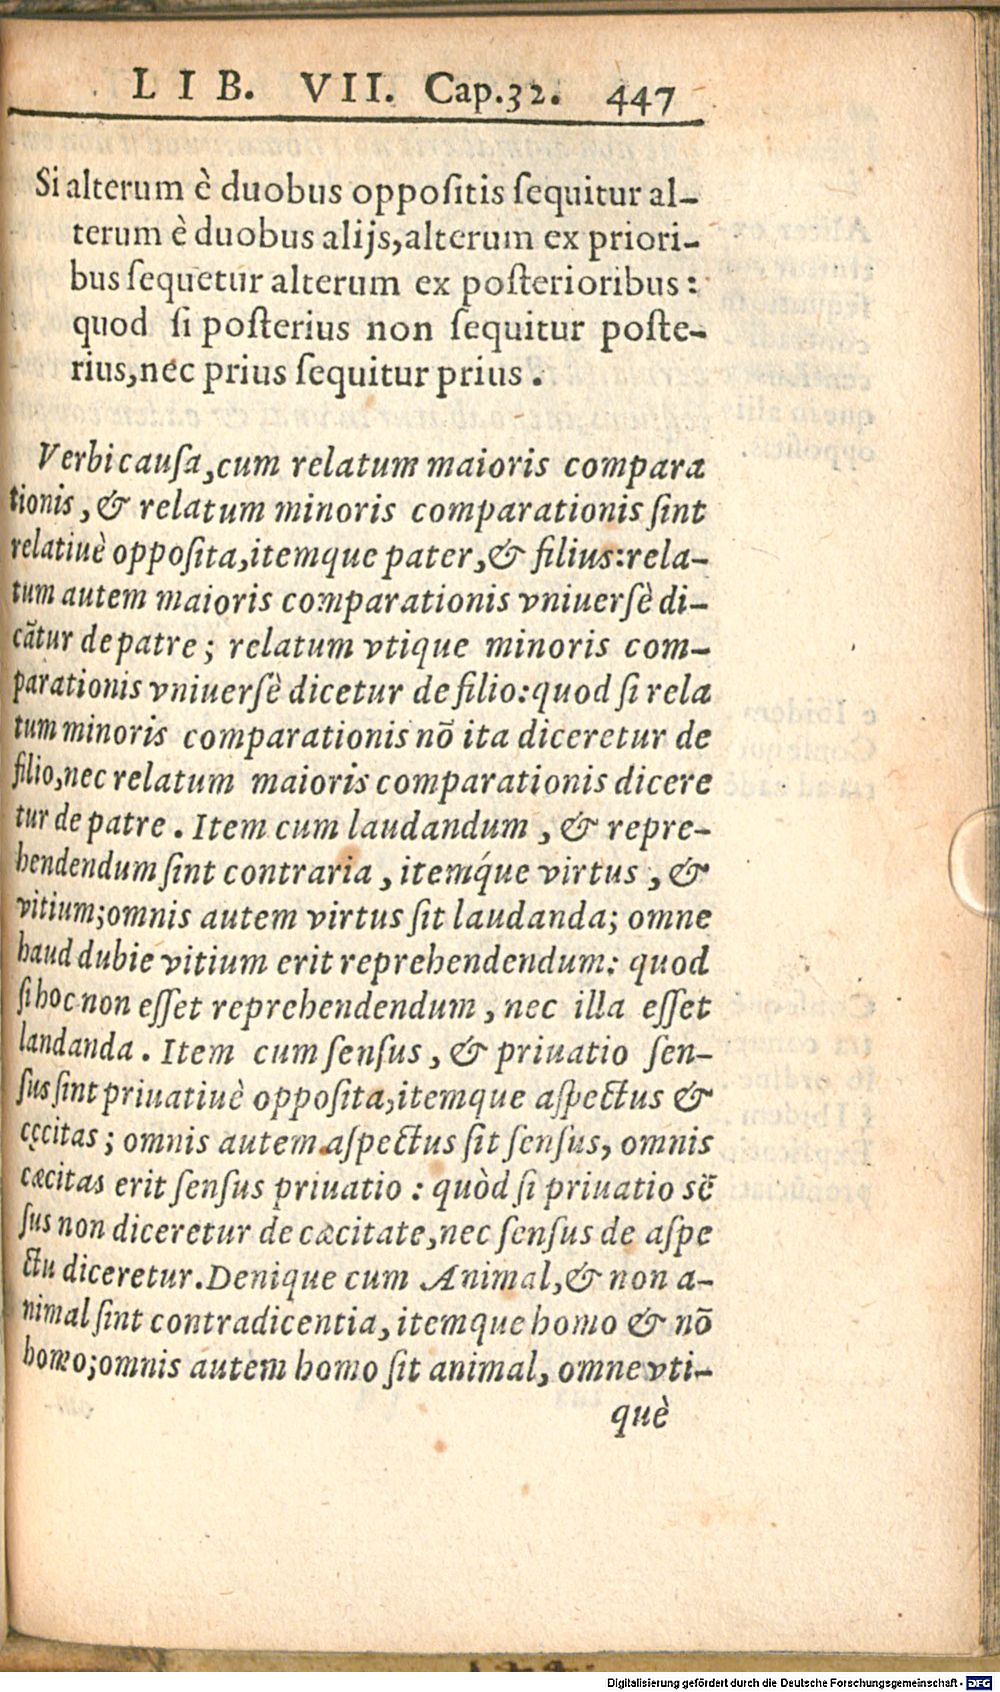 LIB. VII. Cap.32. 447
Si alterum è duobus oppositis sequitur al-
terum è duobus alijs, alterum ex priori-
bus sequetur alterum ex posterioribus:
quod si posterius non sequitur poste-
rius, nec prius sequitur prius.
Verbi causa, cum relatum maioris compara
tionis, & relatum minoris comparationis sint
relatiuè opposita, itemque pater, & filius: rela-
tum autem maioris comparationis vniuersè di-
cãtur de patre; relatum vtique minoris com-
parationis vniuersè dicetur de filio: quod si rela
tum minoris comparationis nõ ita diceretur de
filio, nec relatum maioris comparationis dicere
tur de patre. Item cum laudandum, & repre-
hendendum sint contraria, itemq́ue virtus, &
vitium; omnis autem virtus sit laudanda; omne
haud dubie vitium erit reprehendendum: quod
si hoc non esset reprehendendum, nec illa esset
landanda. Item cum sensus, & priuatio sen-
sus sint priuatiuè opposita, itemque aspectus &
cęcitas; omnis autem aspectus sit sensus, omnis
cæcitas erit sensus priuatio: quòd si priuatio sẽ
sus non diceretur de cæcitate, nec sensus de aspe
ctu diceretur. Denique cum Animal, & non a-
nimal sint contradicentia, itemque homo & nõ
homo; omnis autem homo sit animal, omne vti-
què
Digitalisierung gefördert durch die Deutsche Forschungsgemeinschaft - DFG